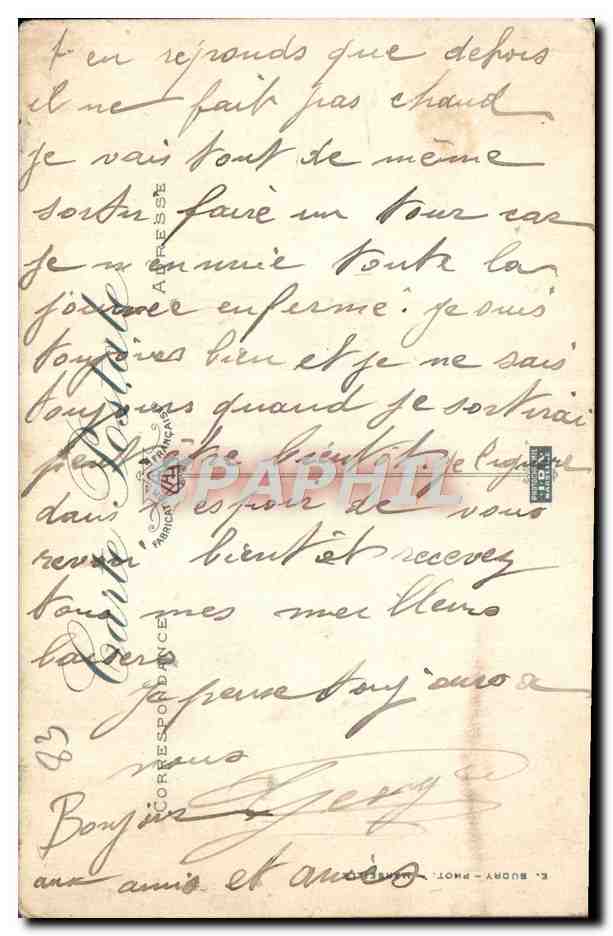 t en réponds que depuis
il ne fait pas chaud
je vais tout de même
sortir faire un tour car
je m ennuie toute la
journee enfermé. je suis
toujours bien et je ne sais
toujours quand je sortirai
peut être bientôt. je l'ignore
dans l espoir de vous
revoir bientôt recevez
tous mes meilleurs
baisers
Ja pense toujours a
vous
Bonjour
aux amis et amies
83
Carte Postale
CORRESPONDANCE
ADRESSE
FABRICATION FRANÇAISE
E. BUDRY - PHOT. MARSEILLE
CPAPHIL